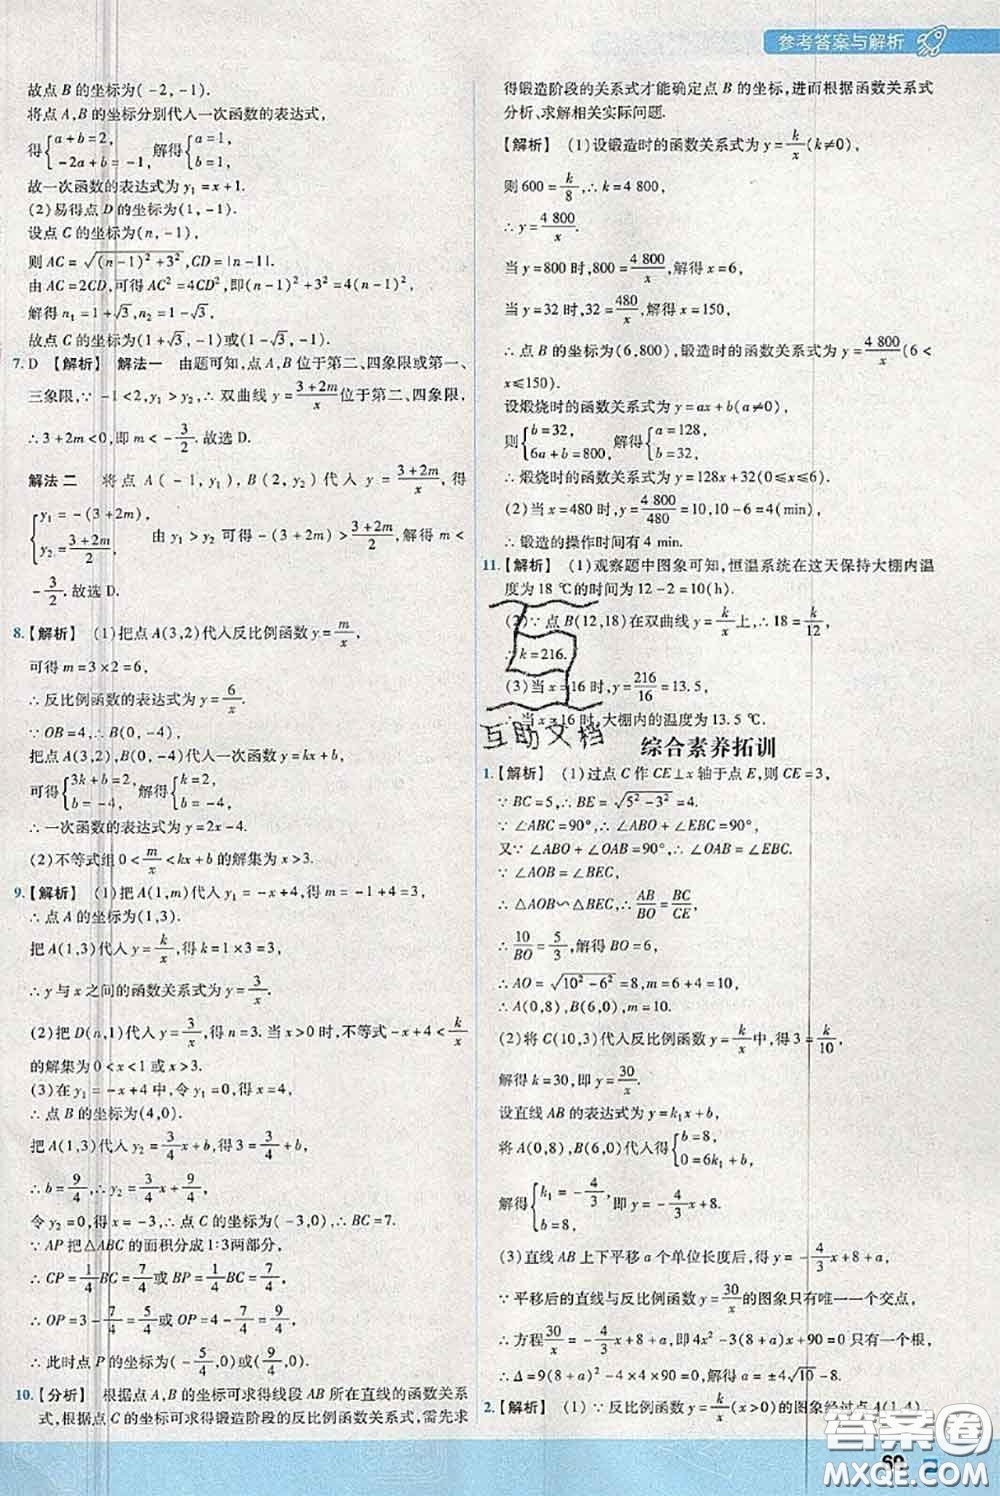 参考答案与解析
故点 B 的坐标为(-2,-1).
将点 A,B 的坐标分别代入一次函数的表达式,
得{a+b=2, -2a+b=-1, 解得{a=1, b=1.
故一次函数的表达式为 y₁=x+1.
(2)易得点 D 的坐标为(1,-1).
设点 C 的坐标为(n,-1),
则 AC=√((n-1)²+3²),CD=|n-1|.
由 AC=2CD,可得 AC²=4CD²,即(n-1)²+3²=4(n-1)²,
解得 n₁=1+√3,n₂=1-√3,
故点 C 的坐标为(1+√3,-1)或(1-√3,-1).
7. D 【解析】 解法一 由题可知,点 A,B 位于第二、四象限或第一、
三象限,∵ -1<2,y₁>y₂,∴ 双曲线 y=(3+2m)/x 位于第二、四象限,
∴ 3+2m<0,即 m<-3/2. 故选 D.
解法二 将点 A(-1,y₁),B(2,y₂)代入 y=(3+2m)/x,得
{y₁=-(3+2m), y₂=(3+2m)/2, 由 y₁>y₂ 可得 -(3+2m)>(3+2m)/2,解得 m<
-3/2. 故选 D.
8. 【解析】 (1)把点 A(3,2)代入反比例函数 y=m/x,
可得 m=3×2=6,
∴ 反比例函数的表达式为 y=6/x.
∵ OB=4,∴ B(0,-4).
把点 A(3,2),B(0,-4)代入一次函数 y=kx+b,
可得{3k+b=2, b=-4, 解得{k=2, b=-4,
∴ 一次函数的表达式为 y=2x-4.
(2)不等式组 0<m/x<kx+b 的解集为 x>3.
9. 【解析】 (1)把 A(1,m)代入 y₁=-x+4,得 m=-1+4=3,
∴ 点 A 的坐标为(1,3).
把 A(1,3)代入 y=k/x,得 k=1×3=3,
∴ y 与 x 之间的函数关系式为 y=3/x.
(2)把 D(n,1)代入 y=3/x,得 n=3. 当 x>0 时,不等式 -x+4<k/x
的解集为 0<x<1 或 x>3.
(3)在 y₁=-x+4 中,令 y₁=0,得 x=4,
∴ 点 B 的坐标为(4,0).
把 A(1,3)代入 y₂=3/4x+b,得 3=3/4+b,
∴ b=9/4,∴ y₂=3/4x+9/4,
令 y₂=0,得 x=-3,∴ 点 C 的坐标为(-3,0),∴ BC=7.
∵ AP 把△ABC 的面积分成 1:3 两部分,
∴ CP=1/4BC=7/4 或 BP=1/4BC=7/4,
∴ OP=3-7/4=5/4 或 OP=4-7/4=9/4,
∴ 此时点 P 的坐标为(-5/4,0)或(9/4,0).
10. 【分析】 根据点 A,B 的坐标可求得线段 AB 所在直线的函数关系
式,根据点 C 的坐标可求得锻造阶段的反比例函数关系式,需先求
得锻造阶段的关系式才能确定点 B 的坐标,进而根据函数关系式
分析、求解相关实际问题.
【解析】 (1)设锻造时的函数关系式为 y=k/x(k≠0),
则 600=k/8,∴ k=4 800,
∴ y=4 800/x.
当 y=800 时,800=4 800/x,解得 x=6,
当 y=32 时,32=480/x,解得 x=150,
∴ 点 B 的坐标为(6,800),锻造时的函数关系式为 y=4 800/x(6<
x≤150).
设煅烧时的函数关系式为 y=ax+b(a≠0),
则{b=32, 6a+b=800, 解得{a=128, b=32,
∴ 煅烧时的函数关系式为 y=128x+32(0≤x≤6).
(2)当 x=480 时,y=4 800/480=10,10-6=4(min),
∴ 锻造的操作时间有 4 min.
11. 【解析】 (1)观察题中图象可知,恒温系统在这天保持大棚内温
度为 18 ℃的时间为 12-2=10(h).
(2)∵ 点 B(12,18)在双曲线 y=k/x 上,∴ 18=k/12,
∴ k=216.
(3)当 x=16 时,y=216/16=13.5,
∴ 当 x=16 时,大棚内的温度为 13.5 ℃.
互助文档
综合素养拓训
1. 【解析】 (1)过点 C 作 CE⊥x 轴于点 E,则 CE=3,
∵ BC=5,∴ BE=√(5²-3²)=4.
∵ ∠ABC=90°,∴ ∠ABO+∠EBC=90°,
又∵ ∠ABO+∠OAB=90°,∴ ∠OAB=∠EBC.
∵ ∠AOB=∠BEC,
∴ △AOB∽△BEC,∴ AB/BO=BC/CE,
∴ 10/BO=5/3,解得 BO=6,
∴ AO=√(10²-6²)=8,m=6+4=10,
∴ A(0,8),B(6,0),m=10.
(2)将 C(10,3)代入反比例函数 y=k/x 中,得 3=k/10,
解得 k=30,即 y=30/x.
设直线 AB 的表达式为 y=k₁x+b,
将 A(0,8),B(6,0)代入得{b=8, 0=6k₁+b,
解得{k₁=-4/3, b=8, 即 y=-4/3x+8.
(3)直线 AB 上下平移 a 个单位长度后,得 y=-4/3x+8+a,
∵ 平移后的直线与反比例函数 y=30/x 的图象只有唯一一个交点,
∴ 方程 30/x=-4/3x+8+a,即 4x²-3(8+a)x+90=0 只有一个根,
∴ Δ=9(8+a)²-4×4×90=0,解得 a=±4√10-8.
2. 【解析】 ∵ 反比例函数 y=k/x(x>0)的图象经过点 A(1,4),
答案圈
MXQE.COM